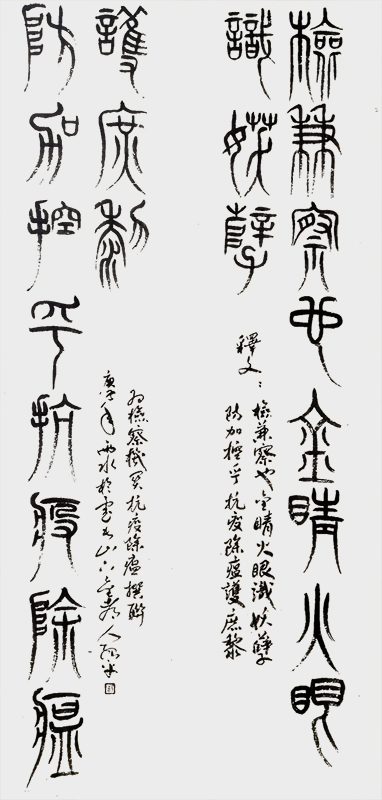 檢兼察也金睛火眼
識妖孽
釋文：
檢兼察也金睛火眼識妖孽
防加控乎抗疫除瘟護庶黎
防加控乎抗疫除瘟
護庶黎
为檢察機关抗疫除瘟撰聯
庚子年雨水於
山下
人